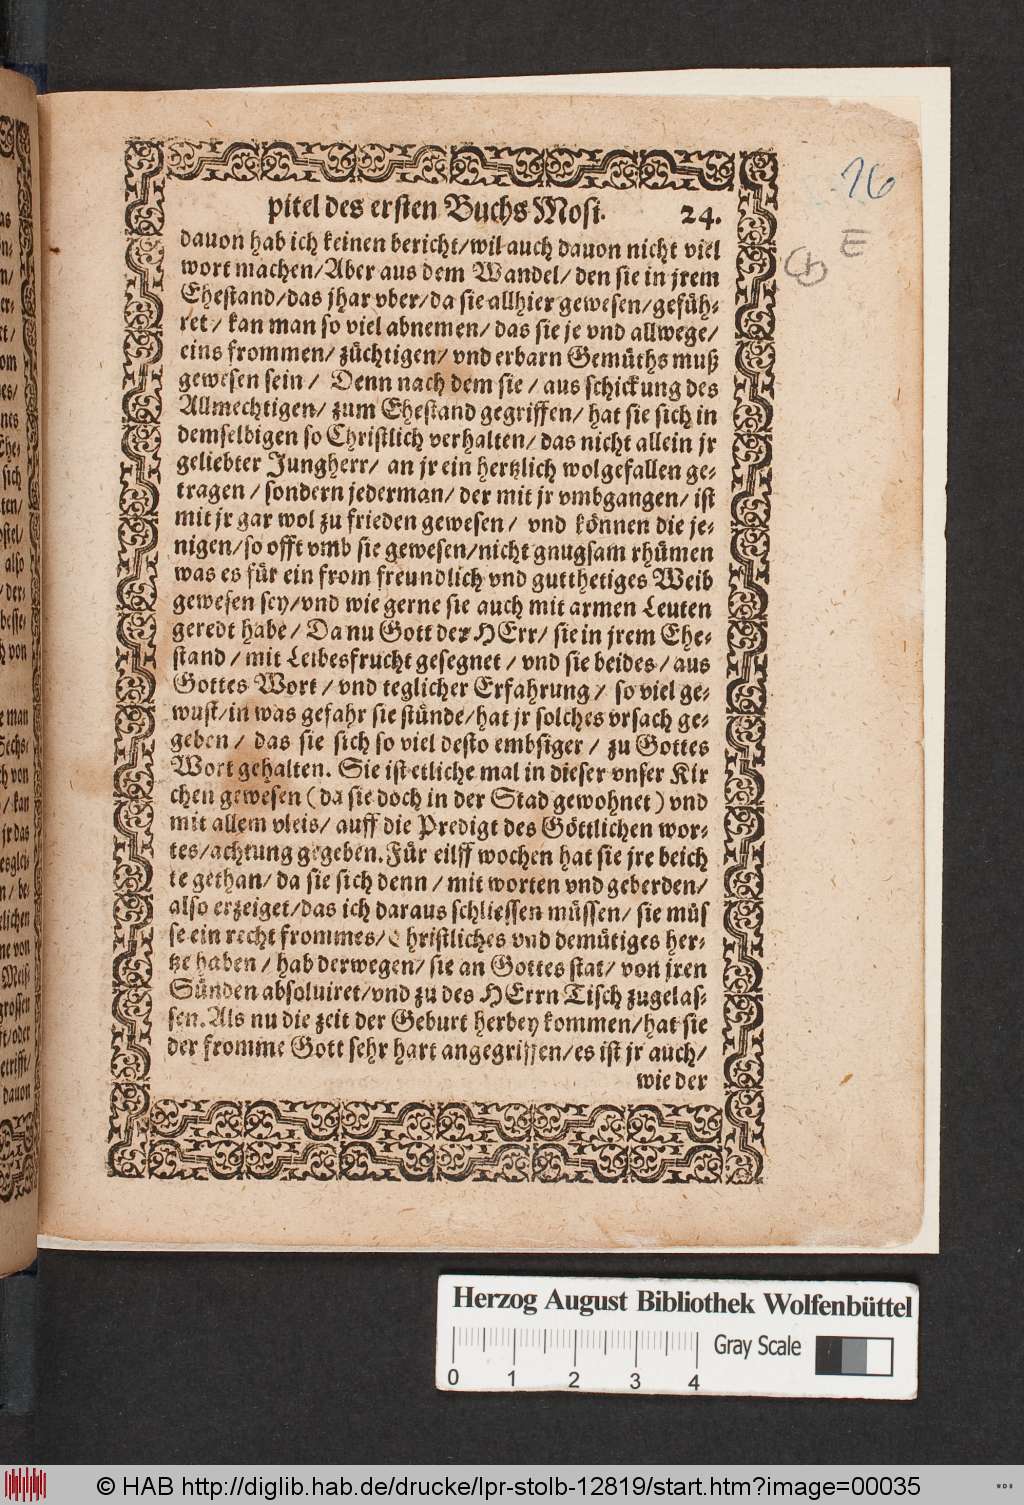 pitel des ersten Buchs Mosi. 24.
dauon hab ich keinen bericht/wil auch dauon nicht viel
wort machen/Aber aus dem Wandel/den sie in jrem
Ehestand/das jhar vber/da sie allhier gewesen/gefüh-
ret/kan man so viel abnemen/das sie je vnd allwege/
eins frommen/züchtigen/vnd erbarn Gemüths muß
gewesen sein/Denn nach dem sie/aus schickung des
Allmechtigen/zum Ehestand gegriffen/hat sie sich in
demselbigen so Christlich verhalten/das nicht allein jr
geliebter Jungherr/an jr ein hertzlich wolgefallen ge-
tragen/sondern jederman/der mit jr vmbgangen/ist
mit jr gar wol zu frieden gewesen/vnd können die je-
nigen/so offt vmb sie gewesen/nicht gnugsam rhümen
was es für ein from freundlich vnd gutthetiges Weib
gewesen sey/vnd wie gerne sie auch mit armen Leuten
geredt habe/Da nu Gott der HErr/sie in jrem Ehe-
stand/mit Leibesfrucht gesegnet/vnd sie beides/aus
Gottes Wort/vnd teglicher Erfahrung/so viel ge-
wust/in was gefahr sie stünde/hat jr solches vrsach ge-
geben/das sie sich so viel desto embsiger/zu Gottes
Wort gehalten. Sie ist etliche mal in dieser vnser Kir
chen gewesen (da sie doch in der Stad gewohnet) vnd
mit allem vleis/auff die Predigt des Göttlichen wor-
tes/achtung gegeben. Für eilff wochen hat sie jre beich
te gethan/da sie sich denn/mit worten vnd geberden/
also erzeiget/das ich daraus schliessen müssen/sie müs
se ein recht frommes/Christliches vnd demütiges her-
tze haben/hab derwegen/sie an Gottes stat/von jren
Sünden absoluiret/vnd zu des HErrn Tisch zugelas-
sen. Als nu die zeit der Geburt herbey kommen/hat sie
der fromme Gott sehr hart angegriffen/es ist jr auch/
wie der
16
E
Herzog August Bibliothek Wolfenbüttel
Gray Scale
0 1 2 3 4
© HAB http://diglib.hab.de/drucke/lpr-stolb-12819/start.htm?image=00035